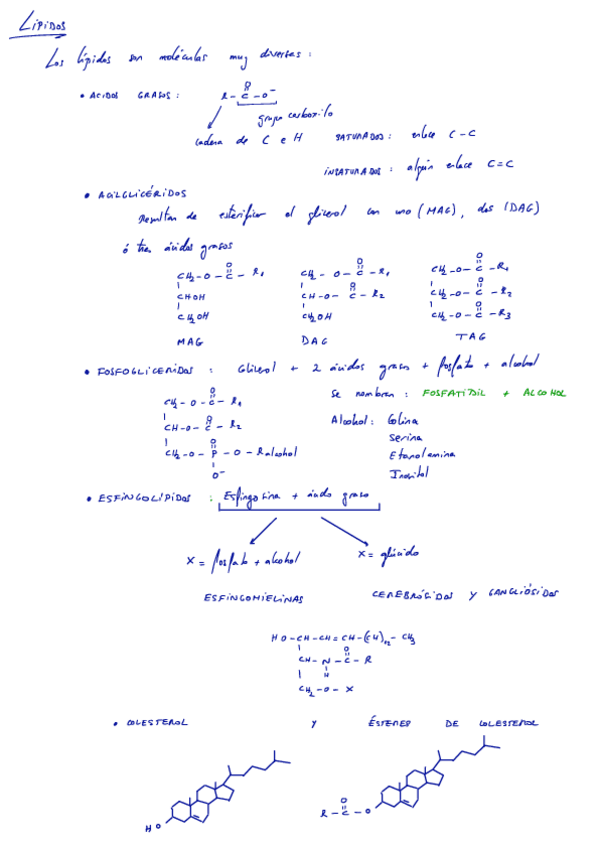 LÍPIDOS
Los lípidos son moléculas muy diversas :
• ACIDOS GRASOS : R - C - O⁻
O
grupo carboxilo
cadena de C e H SATURADOS : enlace C - C
INSATURADOS : algún enlace C = C
• ACILGLICÉRIDOS
Resultan de esterificar el glicerol con uno (MAG), dos (DAG)
ó tres ácidos grasos
O O O
CH₂ - O - C - R₁ CH₂ - O - C - R₁ CH₂ - O - C - R₁
CHOH CH - O - C - R₂ CH₂ - O - C - R₂
CH₂OH CH₂OH CH₂ - O - C - R₃
MAG DAG TAG
• FOSFOGLICERIDOS : Glicerol + 2 ácidos grasos + fosfato + alcohol
Se nombran : FOSFATIDIL + ALCOHOL
CH₂ - O - C - R₁ Alcohol : Colina
CH - O - C - R₂ Serina
CH₂ - O - P - O - R alcohol Etanolamina
O⁻ Inositol
• ESFINGOLÍPIDOS : Esfingosina + ácido graso
X = fosfato + alcohol X = glúcido
ESFINGOMIELINAS CEREBRÓSIDOS Y GANGLIÓSIDOS
HO - CH - CH = CH - (CH)₁₂ - CH₃
O
CH - N - C - R
H
CH₂ - O - X
• COLESTEROL Y ÉSTERES DE COLESTEROL
O
R - C - O
HO